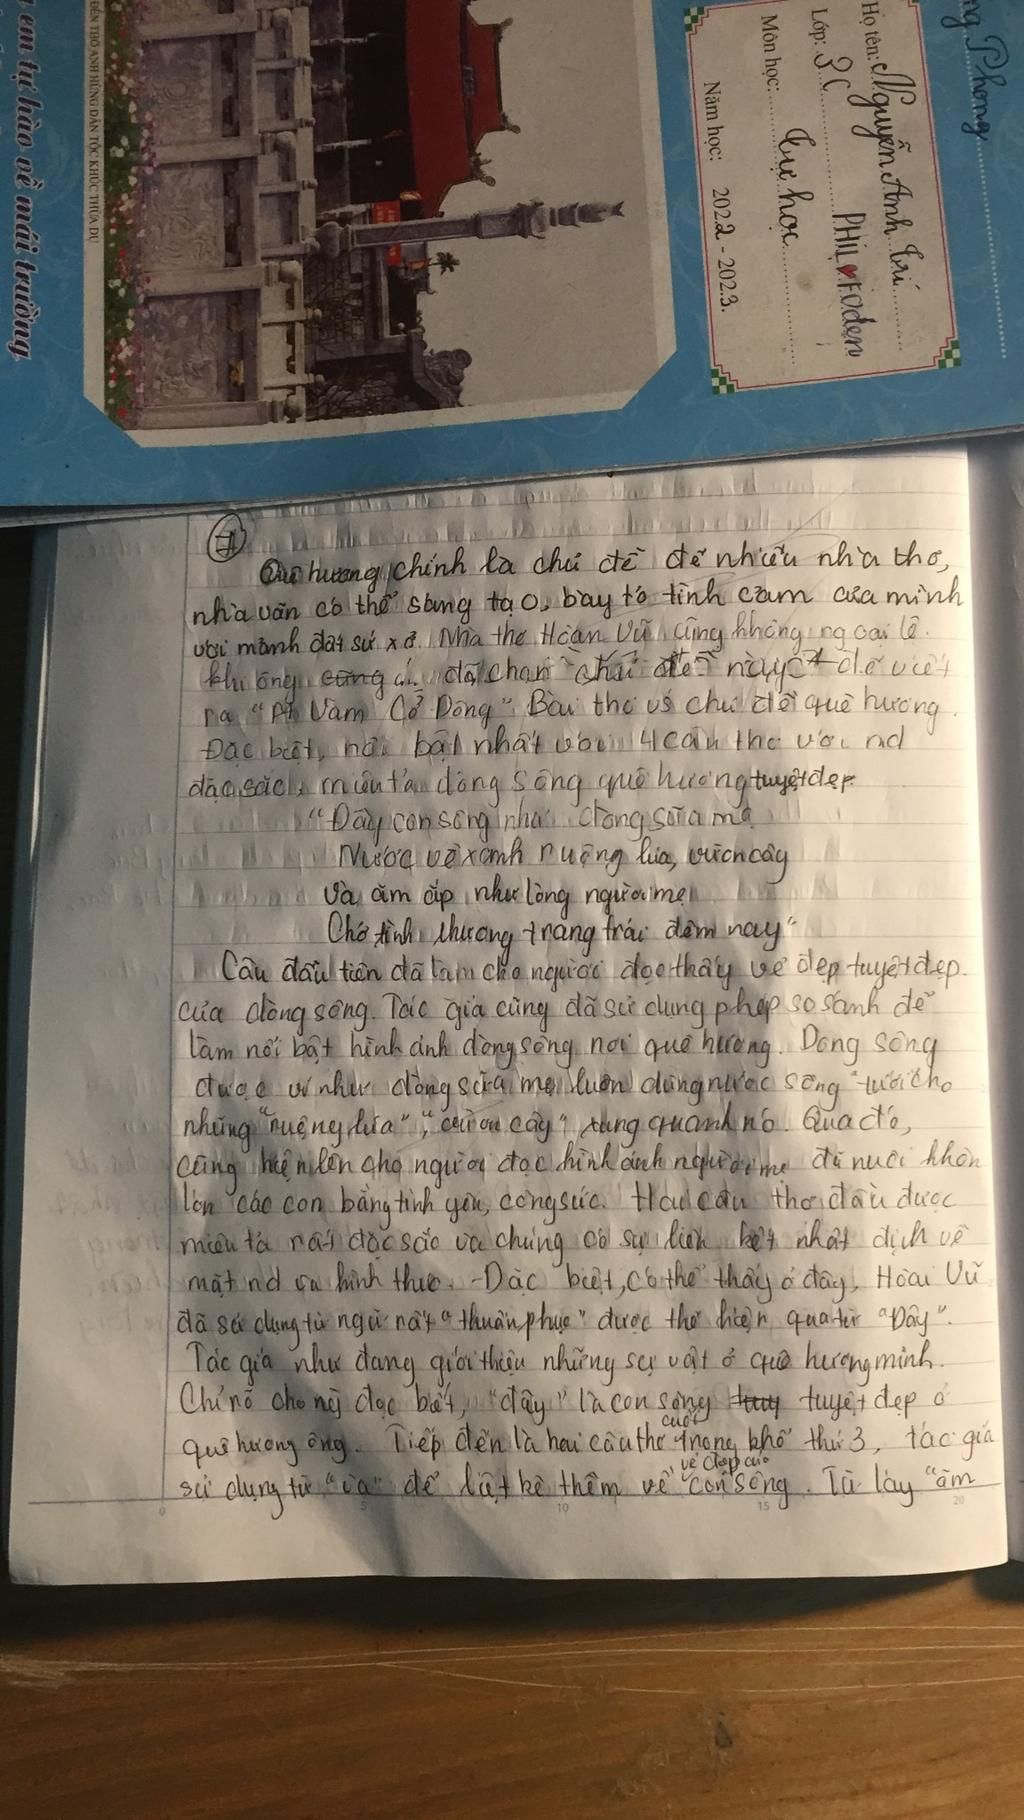 g em tự hào về mái trường
ĐỀN THỜ ANH HÙNG DÂN TỘC KHÚC THỪA DỤ
ng Phong
Họ tên: Nguyễn Anh Trí
Lớp: 3C PHIL♥FOden
Môn học: Tự học
Năm học: 2022 - 2023.
Quê hương chính là chủ đề để nhiều nhà thơ,
nhà văn có thể sáng tạo, bày tỏ tình cảm của mình
với mảnh đất sứ xở. Nhà thơ Hoàn Vũ cũng không ngoại lệ.
khi ông cũng đã chọn chủ đề này để viết
ra "Vàm Cỏ Đông". Bài thơ về chủ đề quê hương.
Đặc biệt, nổi bật nhất với 4 câu thơ với nd
đặc sắc, miêu tả dòng sông quê hương tuyệt đẹp.
"Đây con sông như dòng sữa mẹ
Nước về xanh ruộng lúa, vườn cây
Và ăm ắp như lòng người mẹ
Chở tình thương trang trải đêm nay"
Câu đầu tiên đã làm cho người đọc thấy vẻ đẹp tuyệt đẹp.
của dòng sông. Tác giả cũng đã sử dụng phép so sánh để
làm nổi bật hình ảnh dòng sông nơi quê hương. Dòng sông
được ví như dòng sữa mẹ luôn dùng nước sông tưới cho
những "ruộng lúa", "vườn cây" xung quanh nó. Qua đó,
cũng hiện lên cho người đọc hình ảnh người mẹ đã nuôi khôn
lớn các con bằng tình yêu, công sức. Hai câu thơ đầu được
miêu tả rất đặc sắc và chúng có sự liên kết nhất định về
mặt nd và hình thức. Đặc biệt, có thể thấy ở đây, Hoài Vũ
đã sử dụng từ ngữ rất "thuần phục" được thể hiện qua từ "Đây".
Tác giả như đang giới thiệu những sự vật ở quê hương mình.
Chỉ rõ cho ng đọc biết, "đây" là con sông tuyệt đẹp ở
quê hương ông. Tiếp đến là hai câu thơ cuối trong khổ thứ 3, tác giả
sử dụng từ "và" để liệt kê thêm về vẻ đẹp của con sông. Từ láy "ăm